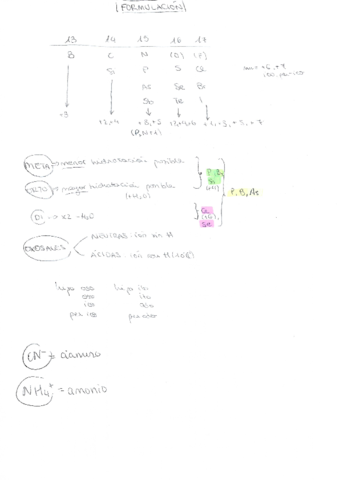 FORMULACIÓN
13 14 15 16 17
B C N (O) (F)
Si P S Cl
As Se Br
Sb Te I
+3 +2,+4 +3,+5 +2,+4,+6 +1,+3,+5,+7
META → menor hidratación posible
ORTO → mayor hidratación posible
DI → x2 - H2O
OXOSALES
NEUTRAS: ión sin H
ÁCIDAS: ión con H
P, B, As
hipo oso hipo ito
oso ito
ico ato
per ico per ato
CN⁻ = cianuro
NH4⁺ = amonio